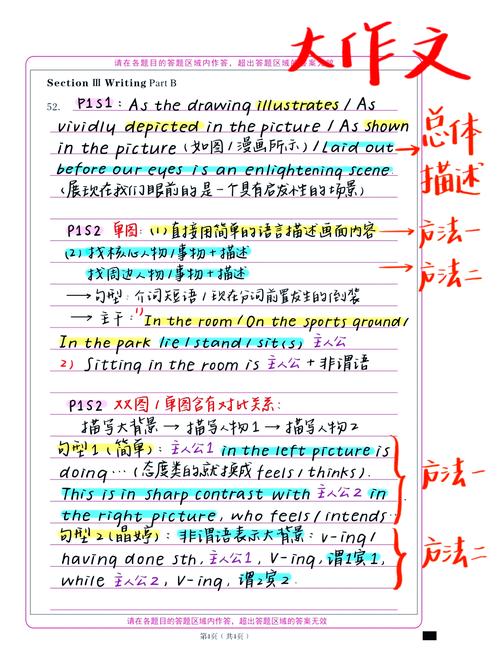 大作文
请在各题目的答题区域内作答，超出答题区域的答案无效
Section Ⅲ Writing Part B
52. P1S1：As the drawing illustrates / As
vividly depicted in the picture / As shown
in the picture（如图/漫画所示）/ Laid out
before our eyes is an enlightening scene.
（展现在我们眼前的是一个具有启发性的场景）
总体
描述
P1S2 单图：(1) 直接用简单的语言描述画面内容
方法一
(2) 找核心人物/事物+描述
找周边人物/事物+描述
方法二
→句型：介词短语/现在分词前置发生的倒装
→ 主干：1) In the room / On the sports ground /
In the park lie / stand / sit(s) 主人公
2) Sitting in the room is 主人公 + 非谓语
P1S2 双图/单图含有对比关系：
描写大背景 → 描写人物1 → 描写人物2
句型1（简单）：主人公1 in the left picture is
doing…（态度类的就换成 feels / thinks）.
This is in sharp contrast with 主人公2 in
the right picture, who feels / intends…
方法一
句型2（晶婷）：非谓语表示大背景：v-ing /
having done sth, 主人公1, V-ing, 谓1宾1,
while 主人公2, V-ing, 谓2宾2.
方法二
请在各题目的答题区域内作答，超出答题区域的答案无效
第4页（共4页）